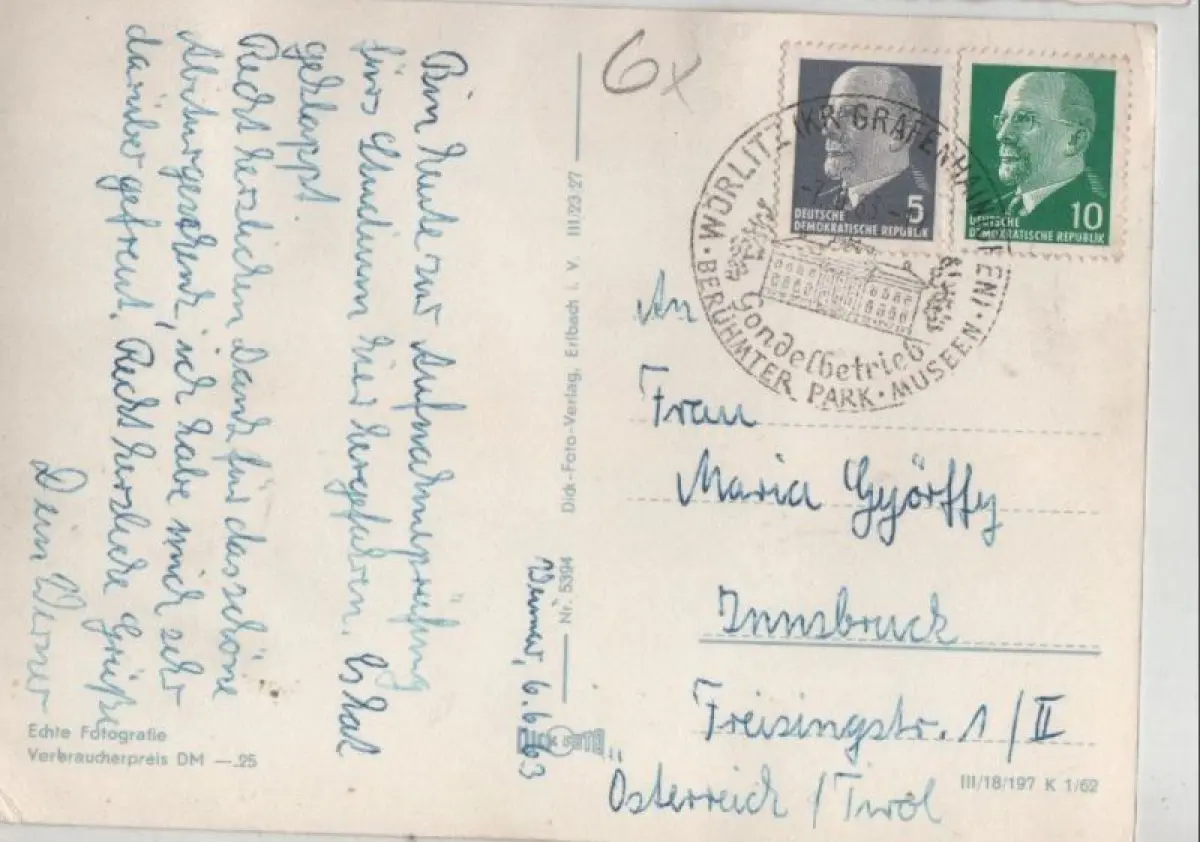 Weimar, 6.6.63
Bin heute zur Aufnahmeprüfung
fürs Studium hier hergefahren. Es hat
geklappt.
Recht herzlichen Dank für das schöne
Abiturgeschenk, ich habe mich sehr
darüber gefreut. Recht herzliche Grüße
Dein Werner
Echte Fotografie
Verbraucherpreis DM —.25
Dick-Foto-Verlag, Erlbach i. V. III/23/27
Nr. 5394
6x
DEUTSCHE
DEMOKRATISCHE REPUBLIK
5
DEUTSCHE
DEMOKRATISCHE REPUBLIK
10
WÖRLITZ (KR GRÄFENHAINICHEN)
Gondelbetrieb
BERÜHMTER PARK · MUSEEN ·
An
Frau
Maria Györffy
Innsbruck
Freisingstr. 1/II
Österreich / Tirol
III/18/197 K 1/62